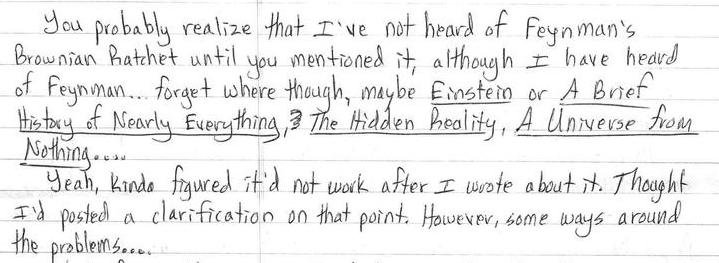 You probably realize that I've not heard of Feynman's
Brownian Ratchet until you mentioned it, although I have heard
of Feynman... forget where though, maybe Einstein or A Brief
History of Nearly Everything, The Hidden Reality, A Universe from
Nothing.....
Yeah, kinda figured it'd not work after I wrote about it. Thought
I'd posted a clarification on that point. However, some ways around
the problems.....